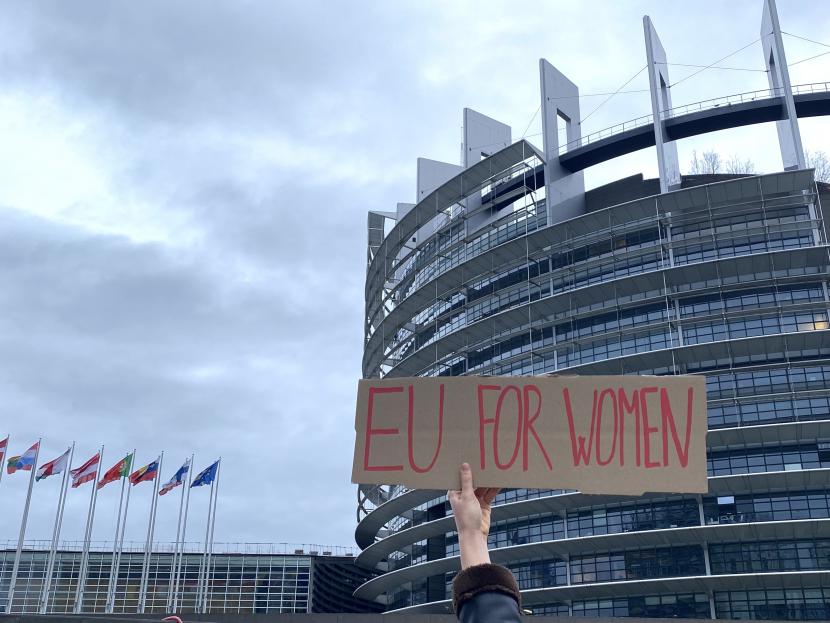 EU FOR WOMEN